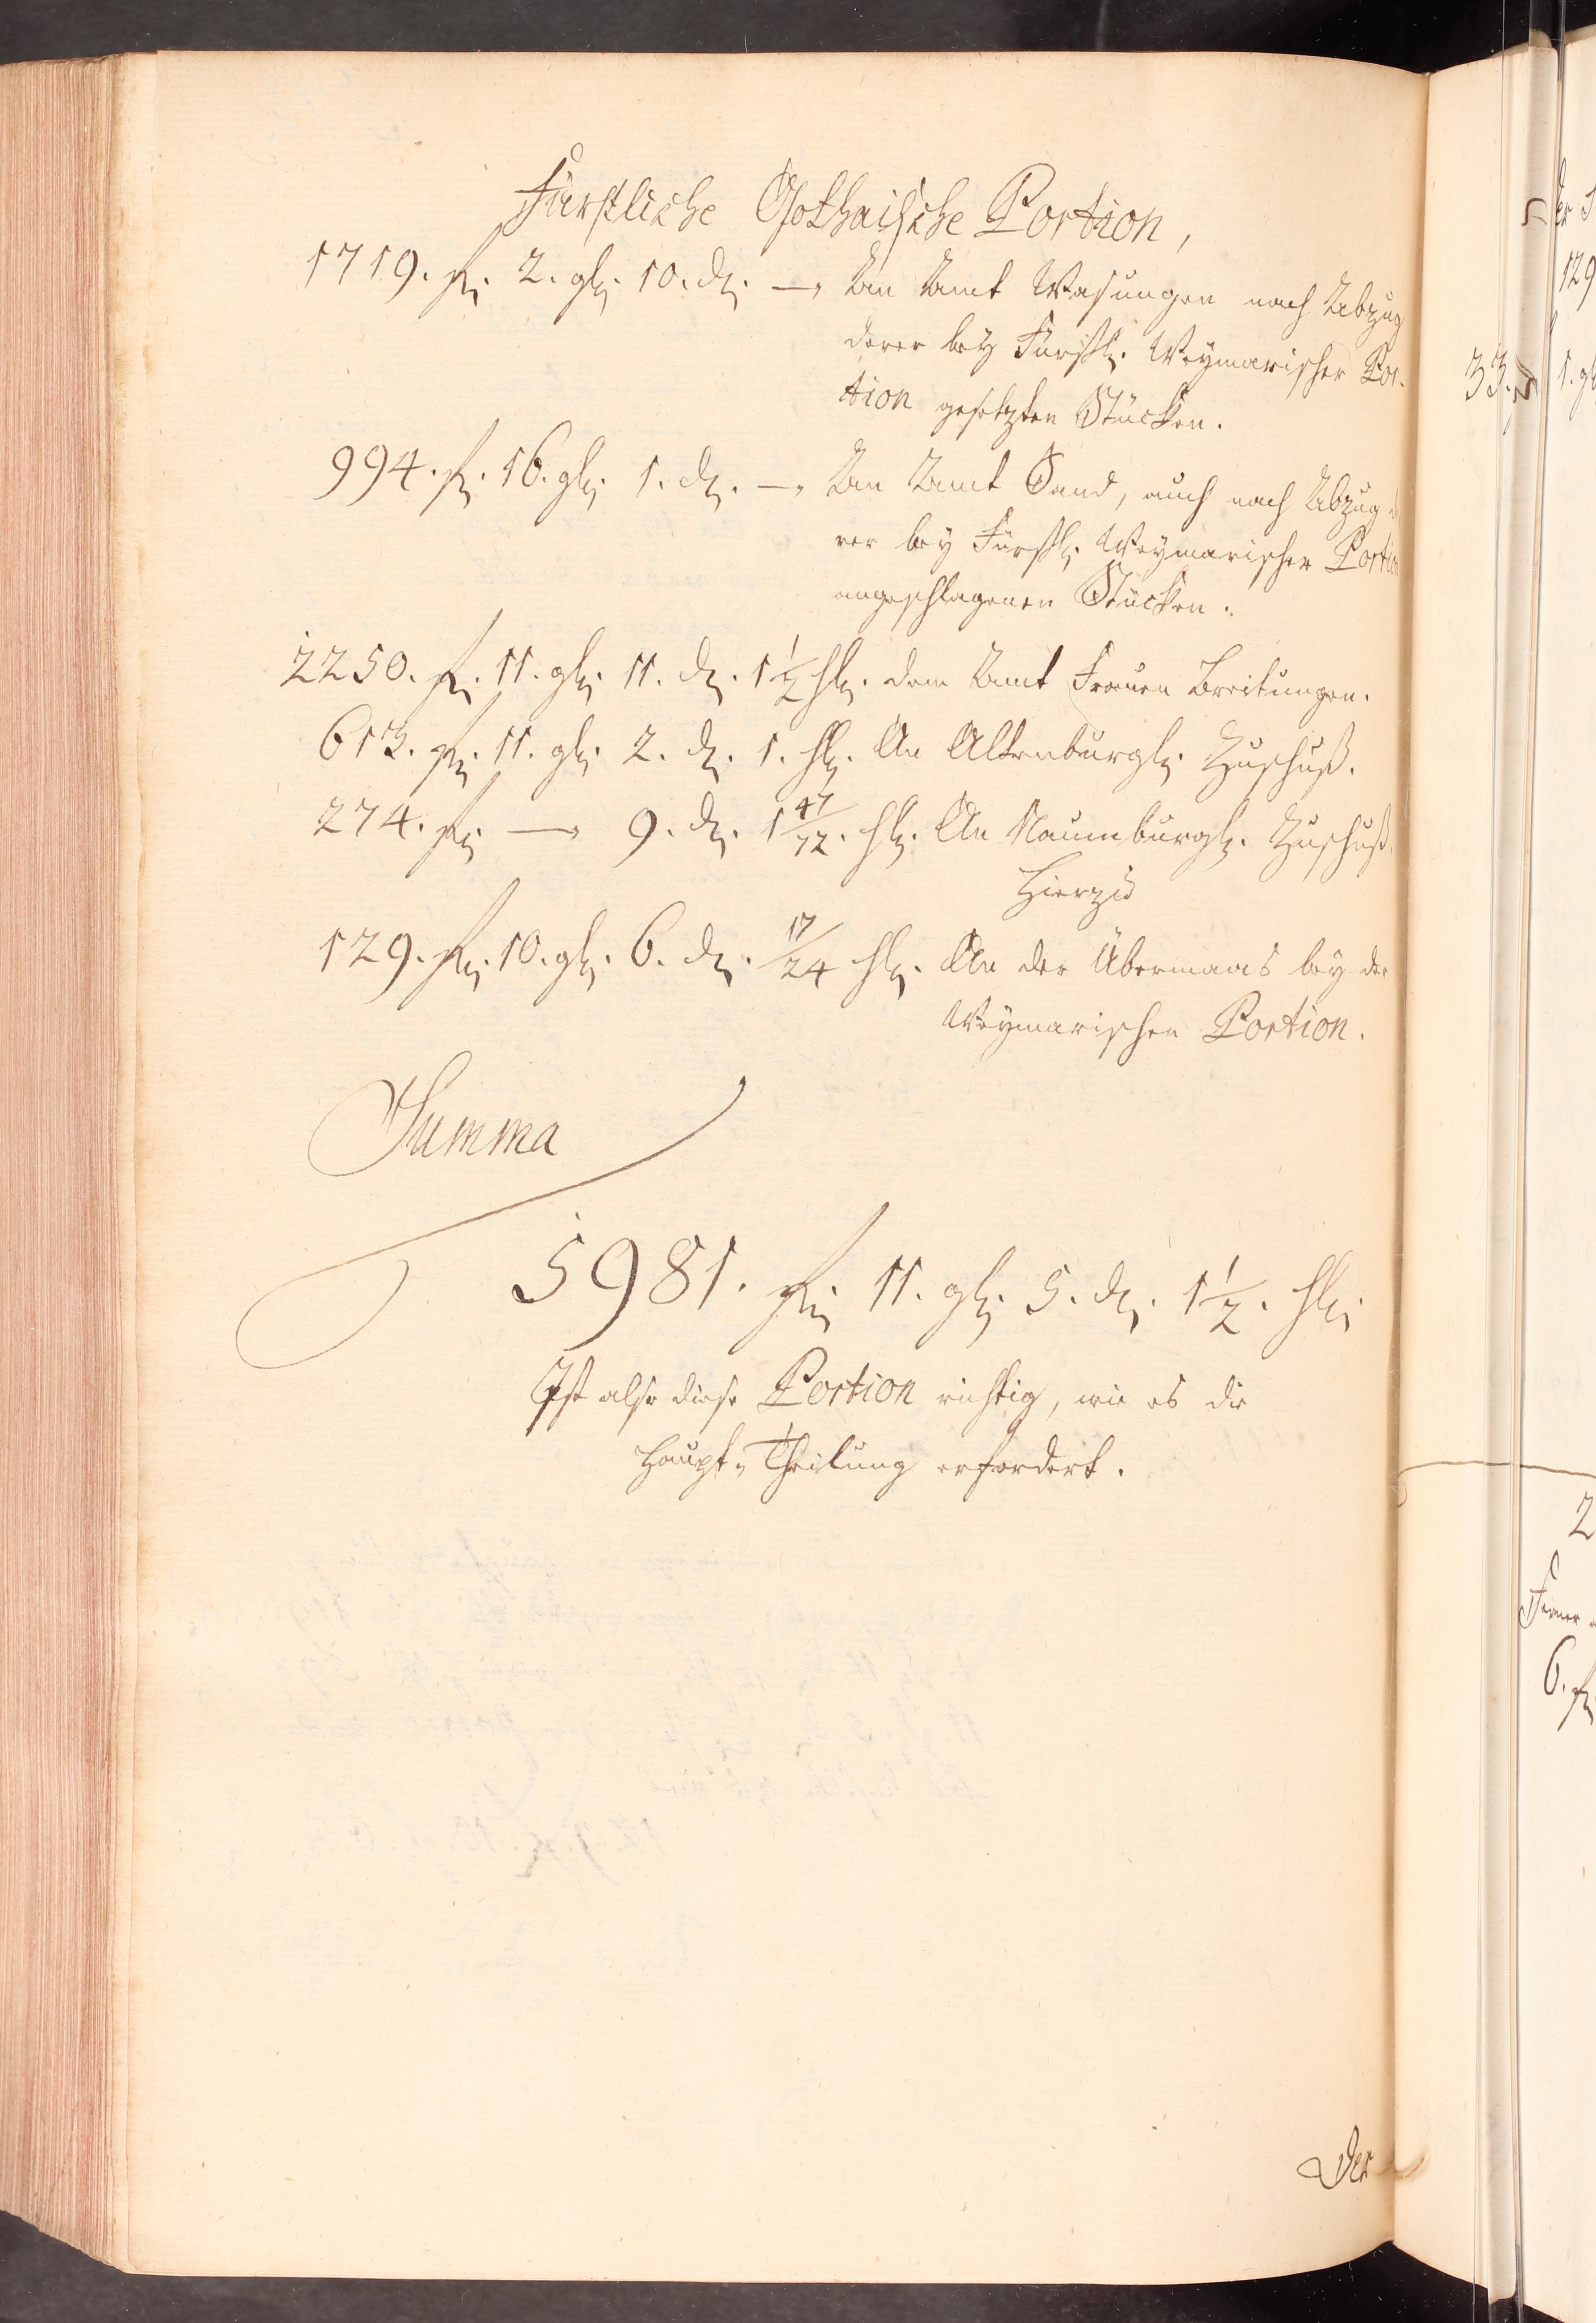 Fürstliche Gothaische Portion,
1719. fl. 2. gl. 10. d. — An Amt Wasungen nach Abzug
derer bey Fürstl. Weymarischer Por-
tion gesetzten Stücken.
994. fl. 16. gl. 1. d. — An Amt Sand, auch nach Abzug de
rer bey Fürstl. Weymarischer Portion
angeschlagenen Stücken.
2250. fl. 11. gl. 11. d. 1 1/2 hl. dem Amt Frauen Breitungen.
613. fl. 11. gl. 2. d. 1. hl. An Altenburgl. Zuschuß.
274. fl. — 9. d. 1 47/72. hl. An Naumburgl. Zuschuß.
Hierzu
129. fl. 10. gl. 6. d. 17/24 hl. An der Übermaas bey der
Weymarischen Portion.
Summa
5981. fl. 11. gl. 5. d. 1 1/2. hl.
Ist also diese Portion richtig, wie es die
Haupt-Theilung erfordert.
Der